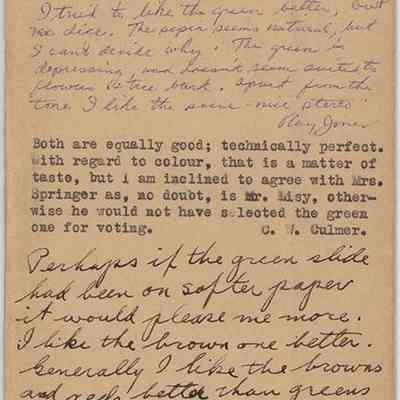 I tried to like the green better, but
no dice. The sepia seems natural, but
I can't decide why. The green is
depressing and doesn't seem suited to
flowers & tree bark. Apart from the
tone I like the scene - nice stereo.
Ray Jones
Both are equally good; technically perfect.
With regard to colour, that is a matter of
taste, but I am inclined to agree with Mrs.
Springer as, no doubt, is Mr. Misy, other-
wise he would not have selected the green
one for voting. C. W. Culmer.
Perhaps if the green slide
had been on softer paper
it would please me more.
I like the brown one better.
Generally I like the browns
and reds better than greens